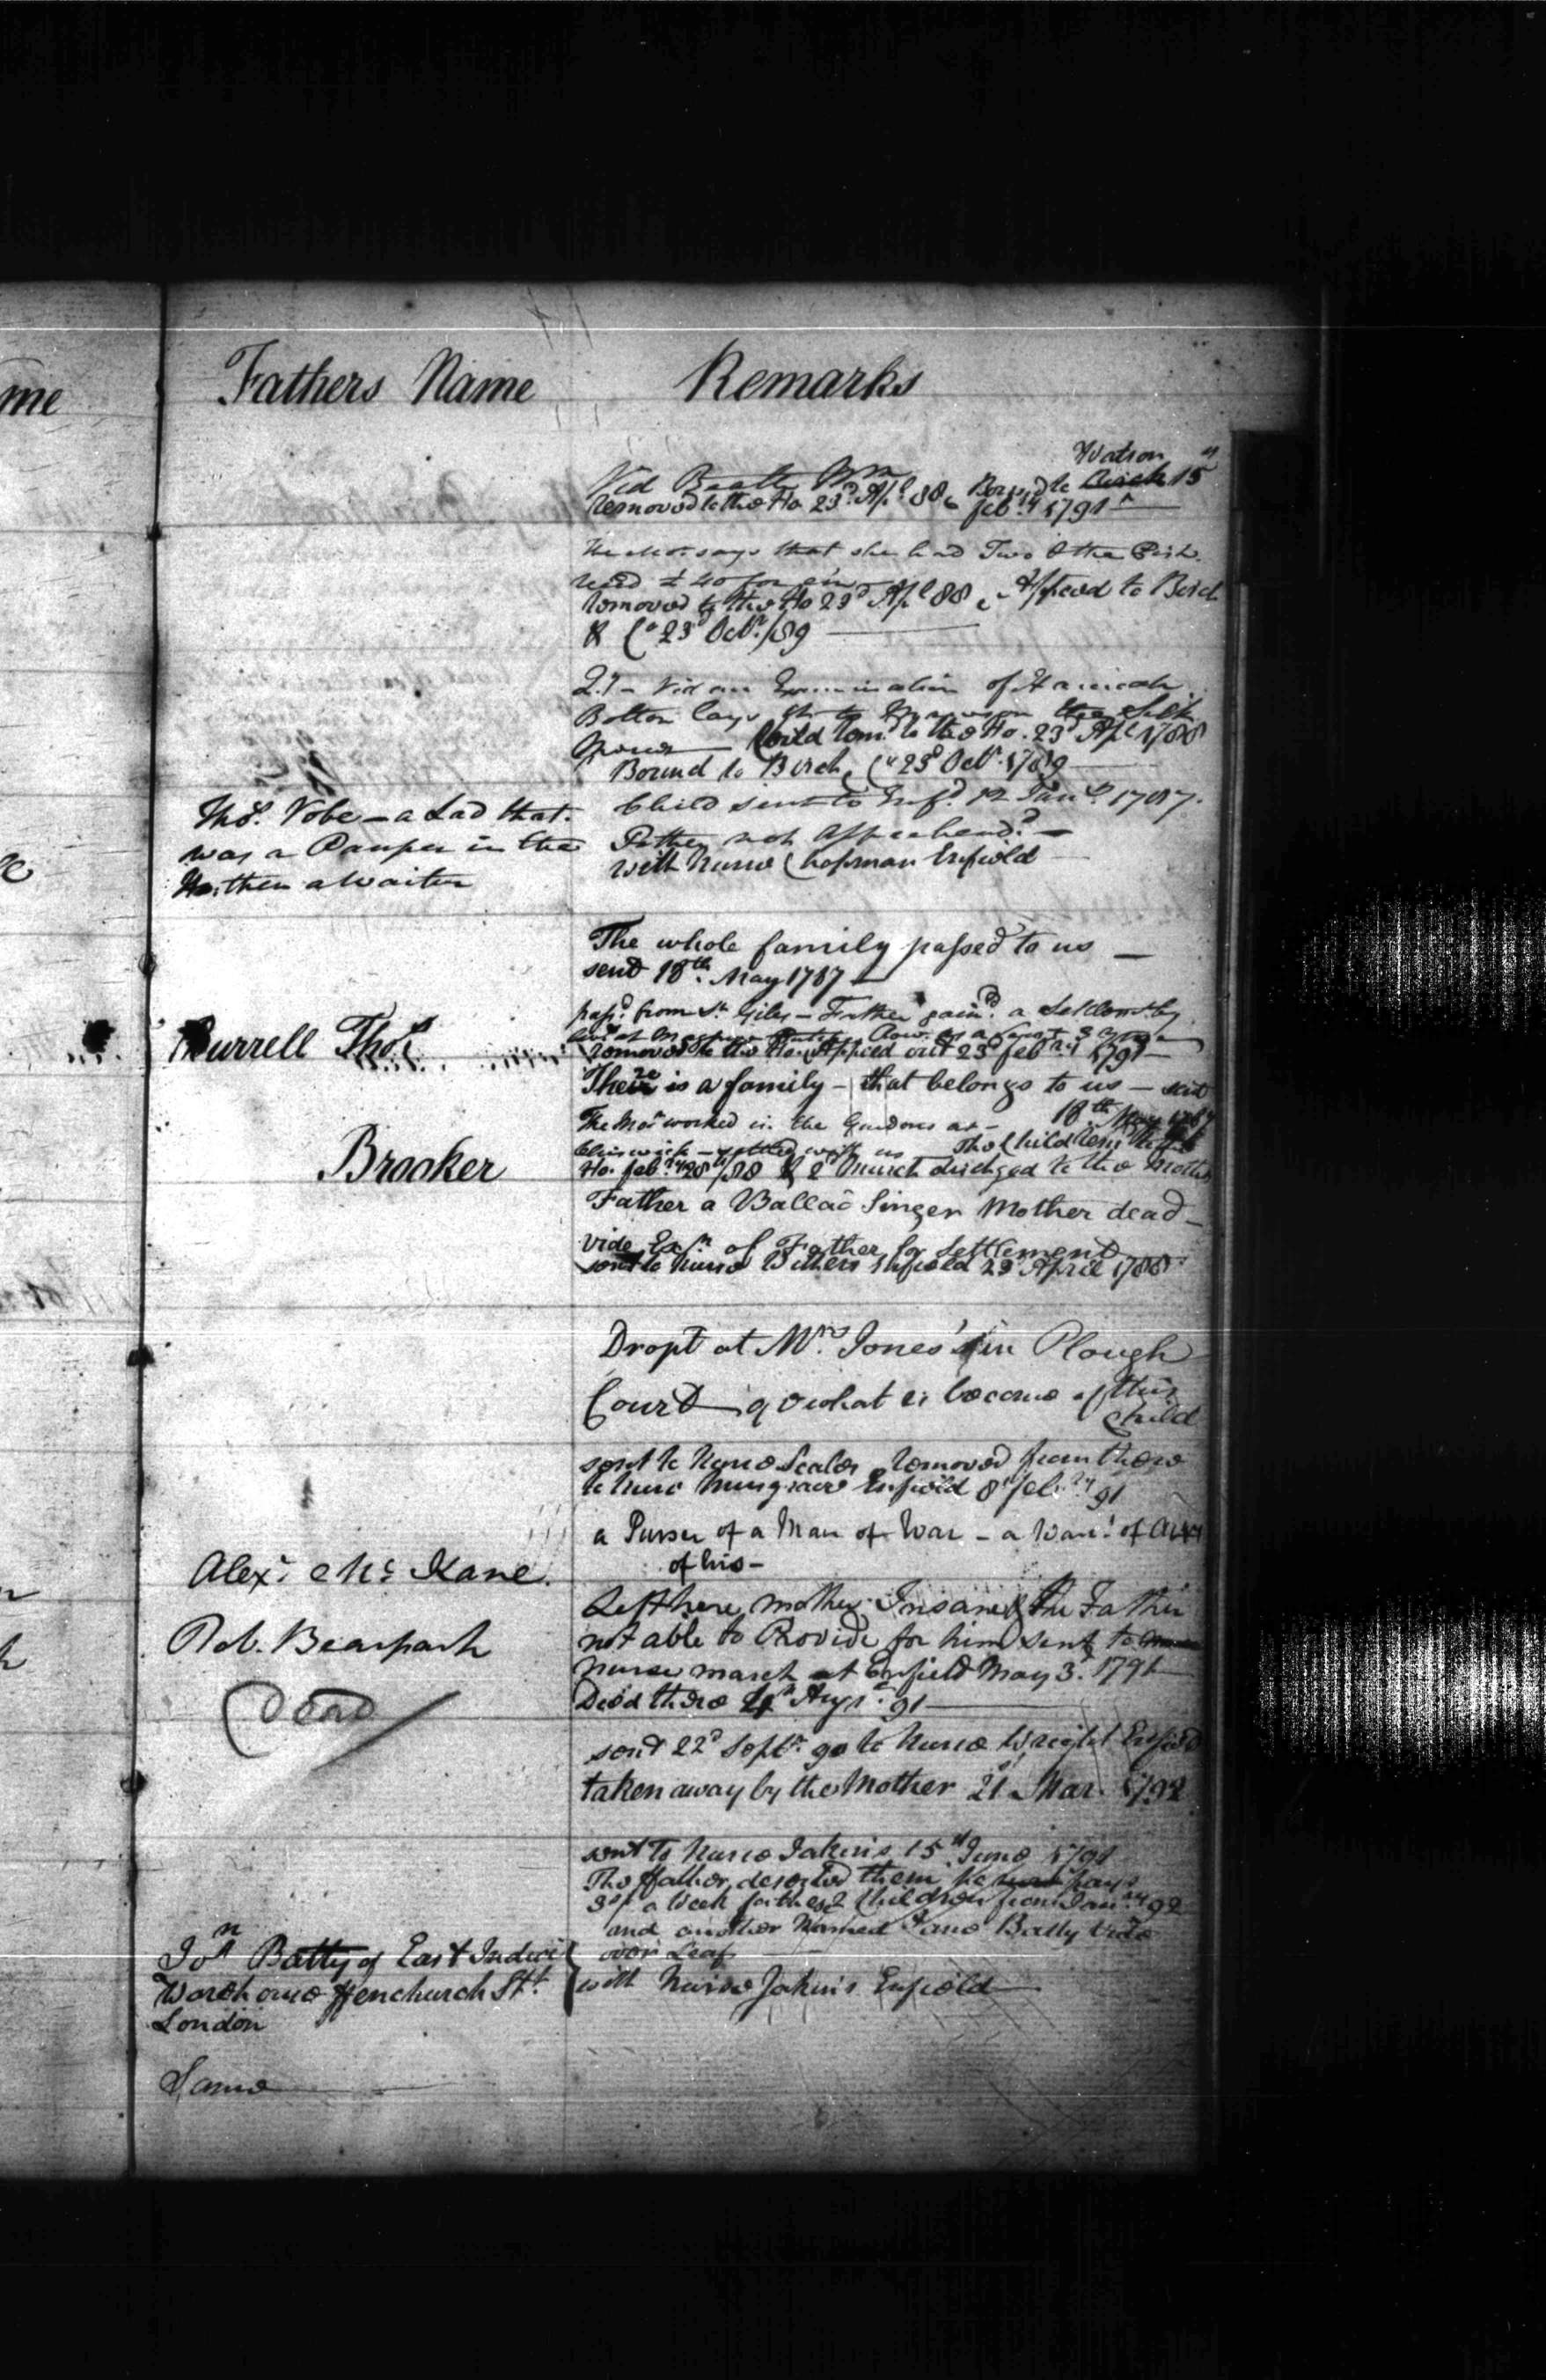 me
Fathers Name
Remarks
Watson
Vid Beatle Wm
Removed to the Ho 23d. Apl. 88 Bound to Birch 15
feby 1791
The Mor. says that she had Two other
recd £40 for
Removed to the Ho 23d Apl 88 Appred to Birch
& Co 23d Octr./89
Examination of Hannah
Bolton
Child remd. to the Ho. 23d Apl 1788
Bound to Birch, Co 23d Octr. 1789
Thos. Vobe – a Lad that
was a Pauper in the
Ho. then a Waiter
Child sent to Enfd. 12 Jany. 1787.
Father not Apprehend.d –
with Nurse Chapman Enfield
The whole family passed to us —
send 18th. May 1787 —
Burrell Thos.
passd. from St. Giles – Father gaind. a Settlemt by
removed to the Ho. Appred out 23d feby 1791 —
There is a family – that belongs to us — sent
18th May 1787
Brooker
The Mor. worked in the Gardens at –
Chiswick – settled with us The Child
Ho. feby. 28th/88 & 2d March dischged to the Mother
Father a Ballad Singer Mother dead –
vide Exn. of Father for Settlement
sent to Nurse Withers Enfield 29 April 1788
Dropt at Mrs. Jones's in Plough
Court q what is become of this
child
sent to Nurse Scales removed from there
to Nurse Musgrave Enfield 8th feby. 91
a Purser of a Man of War – a Wart. of
of his –
Alexr. Mc. Kane.
Left here mother Insane & the Father
Rob. Bearpark
not able to Provide for him sent to
nurse march at Enfield May 3d. 1791
Dead
Died there Augst. 91 —
sent 22d Septr. 90 to Nurse Wright Enfield
taken away by the Mother 21st Mar. 1792
sent to Nurse Jakins 15th June 1791
The father deserted them he pays
3s/ a Week for these 2 Children from Jany. 92
and another Named Jane Batty Vide
over Leaf
Jon Batty of East India
Warehouse Fenchurch St.
London
with Nurse Jakins Enfield —
Same —